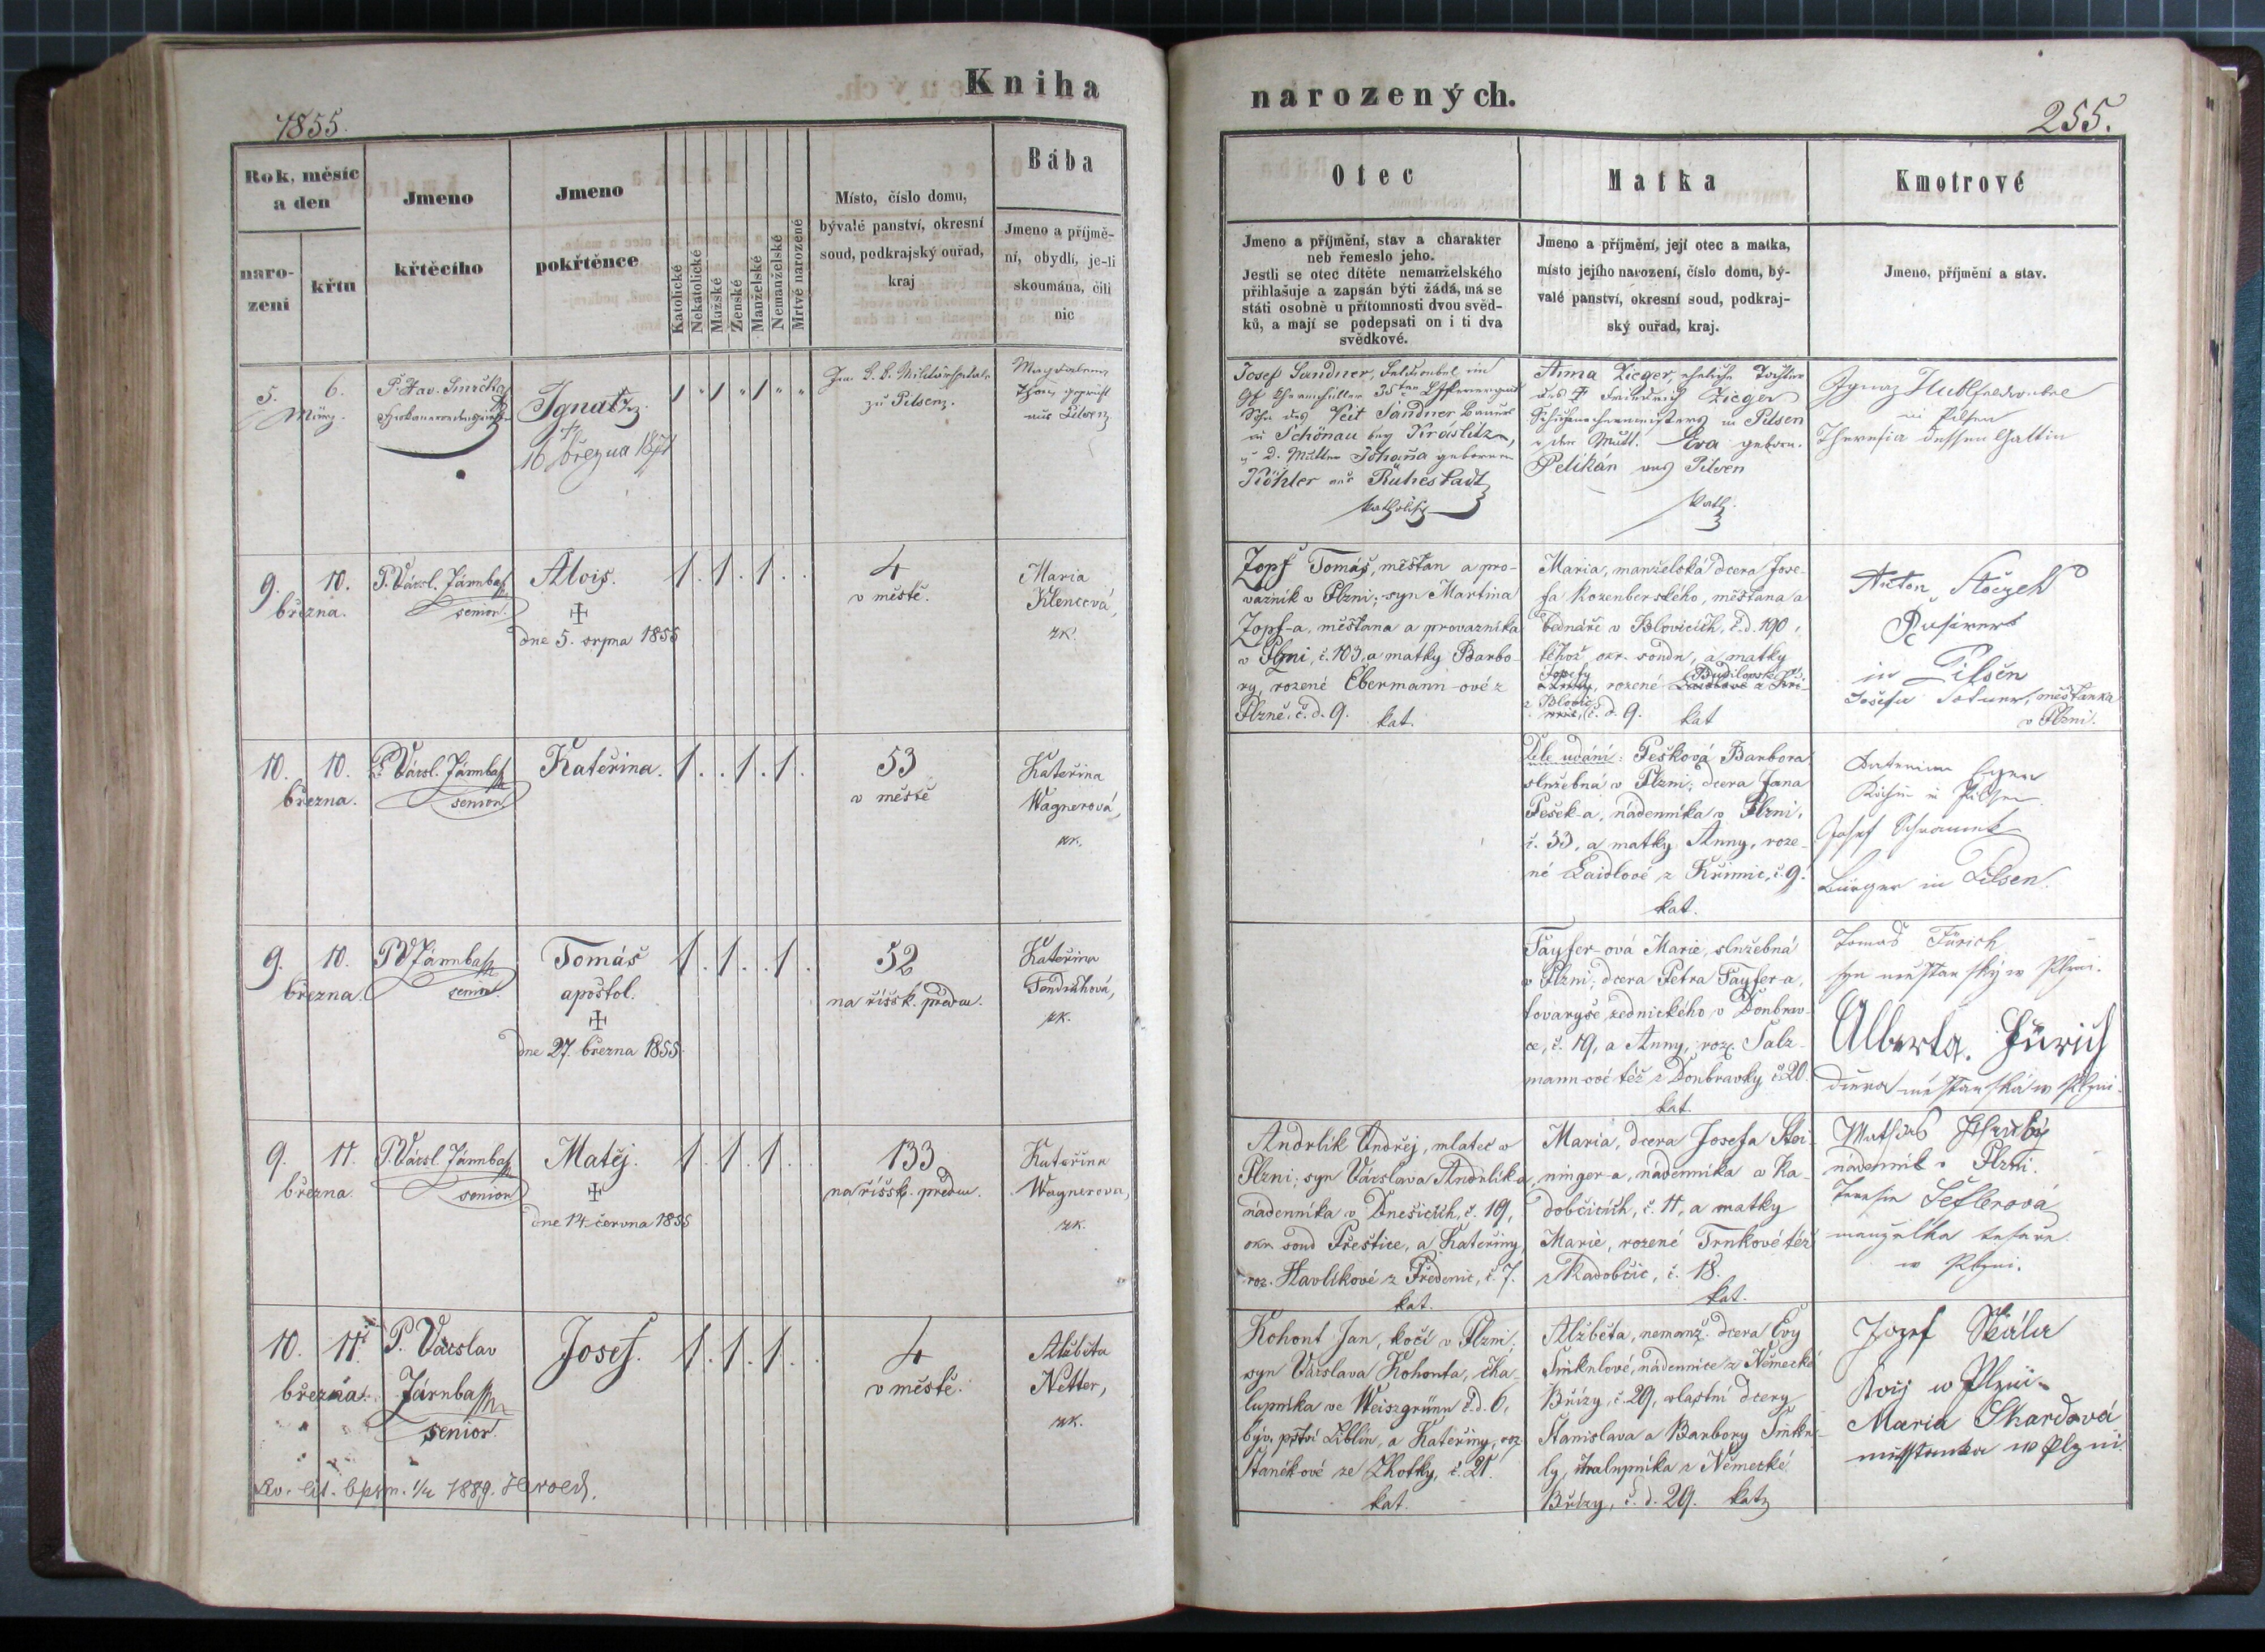 Kniha
1855.
Rok, měsíc
a den
naro-
zení
křtu
Jmeno
křtěcího
Jmeno
pokřtěnce
Katolické
Nekatolické
Mužské
Ženské
Manželské
Nemanželské
Mrtvé narozené
Místo, číslo domu,
bývalé panství, okresní
soud, podkrajský ouřad,
kraj
Bába
Jmeno a příjmě-
ní, obydlí, je-li
skoumána, čili
nic
5. 6.
März.
Ignatz
16 března 1871
zu Pilsen.
Magdalena
aus Pilsen
9. 10.
března.
P. Václ. Járnba
senior.
Alois.
dne 5. srpna 1855
1. 1. 1.
4
v městě.
Maria
Klencová,
zk.
10. 10.
března.
P. Václ. Járnba
senior
Kateřina.
1. . 1. 1.
53
v městě
Kateřina
Wagnerová,
zk.
9. 10.
března.
P V Járnba
senior.
Tomáš
apoštol.
dne 27. března 1855.
1. 1. . 1.
52
na říšsk. předm.
Kateřina
zk.
9. 11.
března.
P. Václ. Járnba
senior
Matěj.
dne 14. června 1855
1. 1. 1.
133
na říšsk. předm.
Kateřina
Wagnerova,
zk.
10. 11.
března.
P. Václav
Járnba
senior.
Josef.
1. 1. 1.
4
v městě.
Alžběta
Netter,
zk.
1889.
narozených.
255.
Otec
Jmeno a příjmění, stav a charakter
neb řemeslo jeho.
Jestli se otec dítěte nemanželského
přihlašuje a zapsán býti žádá, má se
státi osobně u přítomnosti dvou svěd-
ků, a mají se podepsati on i ti dva
svědkové.
Matka
Jmeno a příjmění, její otec a matka,
místo jejího narození, číslo domu, bý-
valé panství, okresní soud, podkraj-
ský ouřad, kraj.
Kmotrové
Jmeno, příjmění a stav.
Josef Sandner, Feldwebel im
35ten
Sohn des Veit Sandner Bauers
in Schönau bey
d. Mutter Johanna geborenen
Köhler aus Ruhestadt
katholisch
Anna Zieger, eheliche Tochter
des Friedrich Zieger
Schuhmachermeisters in Pilsen
der Mutt. Eva geborn.
Pelikán aus Pilsen
kath.
Ignaz
in Pilsen
Theresia dessen Gattin
Zopf Tomáš, měšťan a pro-
vazník v Plzni; syn Martina
Zopf-a, měšťana a provazníka
v Plzni, č. 103, a matky Barbo-
ry, rozené Ebermann-ové z
Plzně, č. d. 9. kat.
Maria, manželská dcera Jose-
fa Rozenberského, měšťana a
bednáře v Blovicích, č. d. 190,
téhož okr. soudu, a matky
Josefy
rozené
z Blovic
č. d. 9. kat
Anton
in Pilsen
měšťanka
v Plzni.
Dle udání: Pešková Barbora
služebná v Plzni; dcera Jana
Pešek-a, nádenníka v Plzni,
č. 33, a matky Anny, roze-
né Laidlové z Křimic, č. 9.
kat.
in Pilsen
Josef
Bürger in Pilsen.
Tayfer-ová Marie, služebná
v Plzni, dcera Petra Tayfer-a,
tovaryše zednického v Doubrav-
ce, č. 19, a Anny, roz. Salz-
mann-ové též z Doubravky č. 20.
kat.
Tomas Zürich
syn městanský w Plzni.
Alberta. Zürich
dcera městanska w Plzni.
Andrlík Ondřej, mlatec v
Plzni; syn Václava Andrlík-a
nádenníka v Dnešicích, č. 19,
okr. soud Přeštice, a Kateřiny,
roz. Havlíkové z Předenic, č. 7.
kat.
Maria, dcera Josefa Stei-
ninger-a, nádenníka v Ra-
dobčicích, č. 11, a matky
Marie, rozené Trnkové též
z Radobčic, č. 18.
kat.
Mathias
nádenník v Plzni.
Teresie Šeflerová
manželka tesaře
w Plzni.
Kohout Jan, kočí v Plzni,
syn Václava Kohouta, cha-
lupníka ve Weiszgrünn č. d. 6,
býv. pství Liblín, a Kateřiny, roz.
Staněkové ze Lhotky, č. 21.
kat.
Alžběta, nemanž. dcera Evy
nádennice z Německé
Břízy, č. 29, vlastní dcery
Stanislava a Barbory
chalupníka z Německé
Břízy, č. d. 29. kat
Jozef Skála
w Plzni.
Maria Skardová
w Plzni